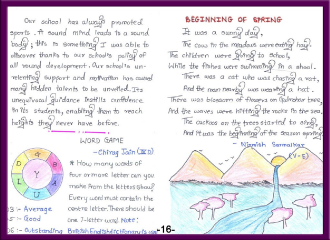 Our school has always promoted
sports. A sound mind leads to a sound
body; this is something I was able to
discover thanks to our school's policy of
all round development. Our school's un-
relenting support and motivation has owed
many hidden talents to be unveiled. Its
unequivocal guidance instills confidence
in its students, enabling them to reach
heights they never have before.
WORD GAME
- Chirag Jain
* How many words of
four or more letter can you
make from the letters shown?
Every word must contain the
centre letter. There should be
one 7-letter word. Note:
- Average
- Good
- Outstanding
BEGINNING OF SPRING
It was a sunny day,
The cow in the meadows were eating hay.
The children were going to school,
While the fishes were swimming in a shoal.
There was a cat who was chasing a rat,
And the man nearby was wearing a hat.
There was blossom of flowers on another tree,
And the waves were hitting the rocks in the sea,
The cuckoo on the trees started to sing,
And it was the beginning of the season spring.
(V-E)
-16-